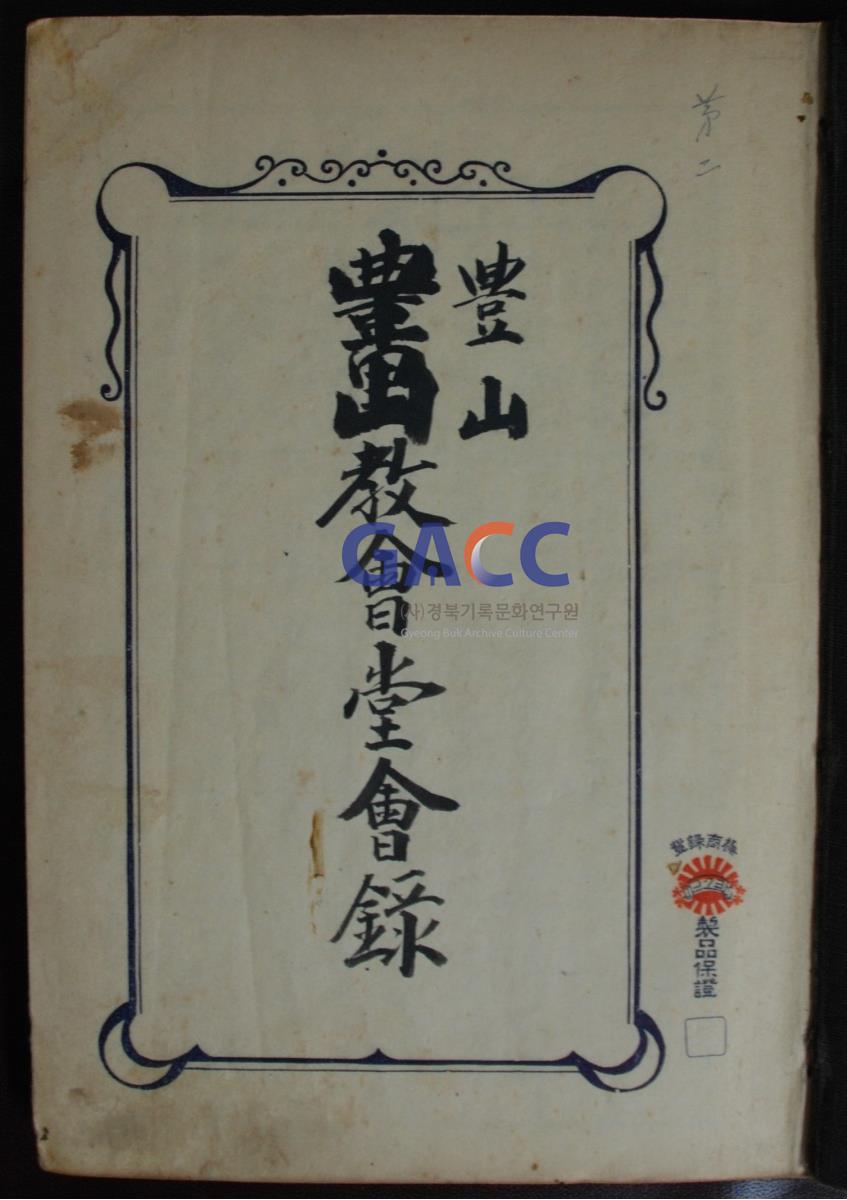 苐二
豊山
教會堂會錄
登録商標
製品保證
GACC
(사)경북기록문화연구원
Gyeong Buk Archive Culture Center